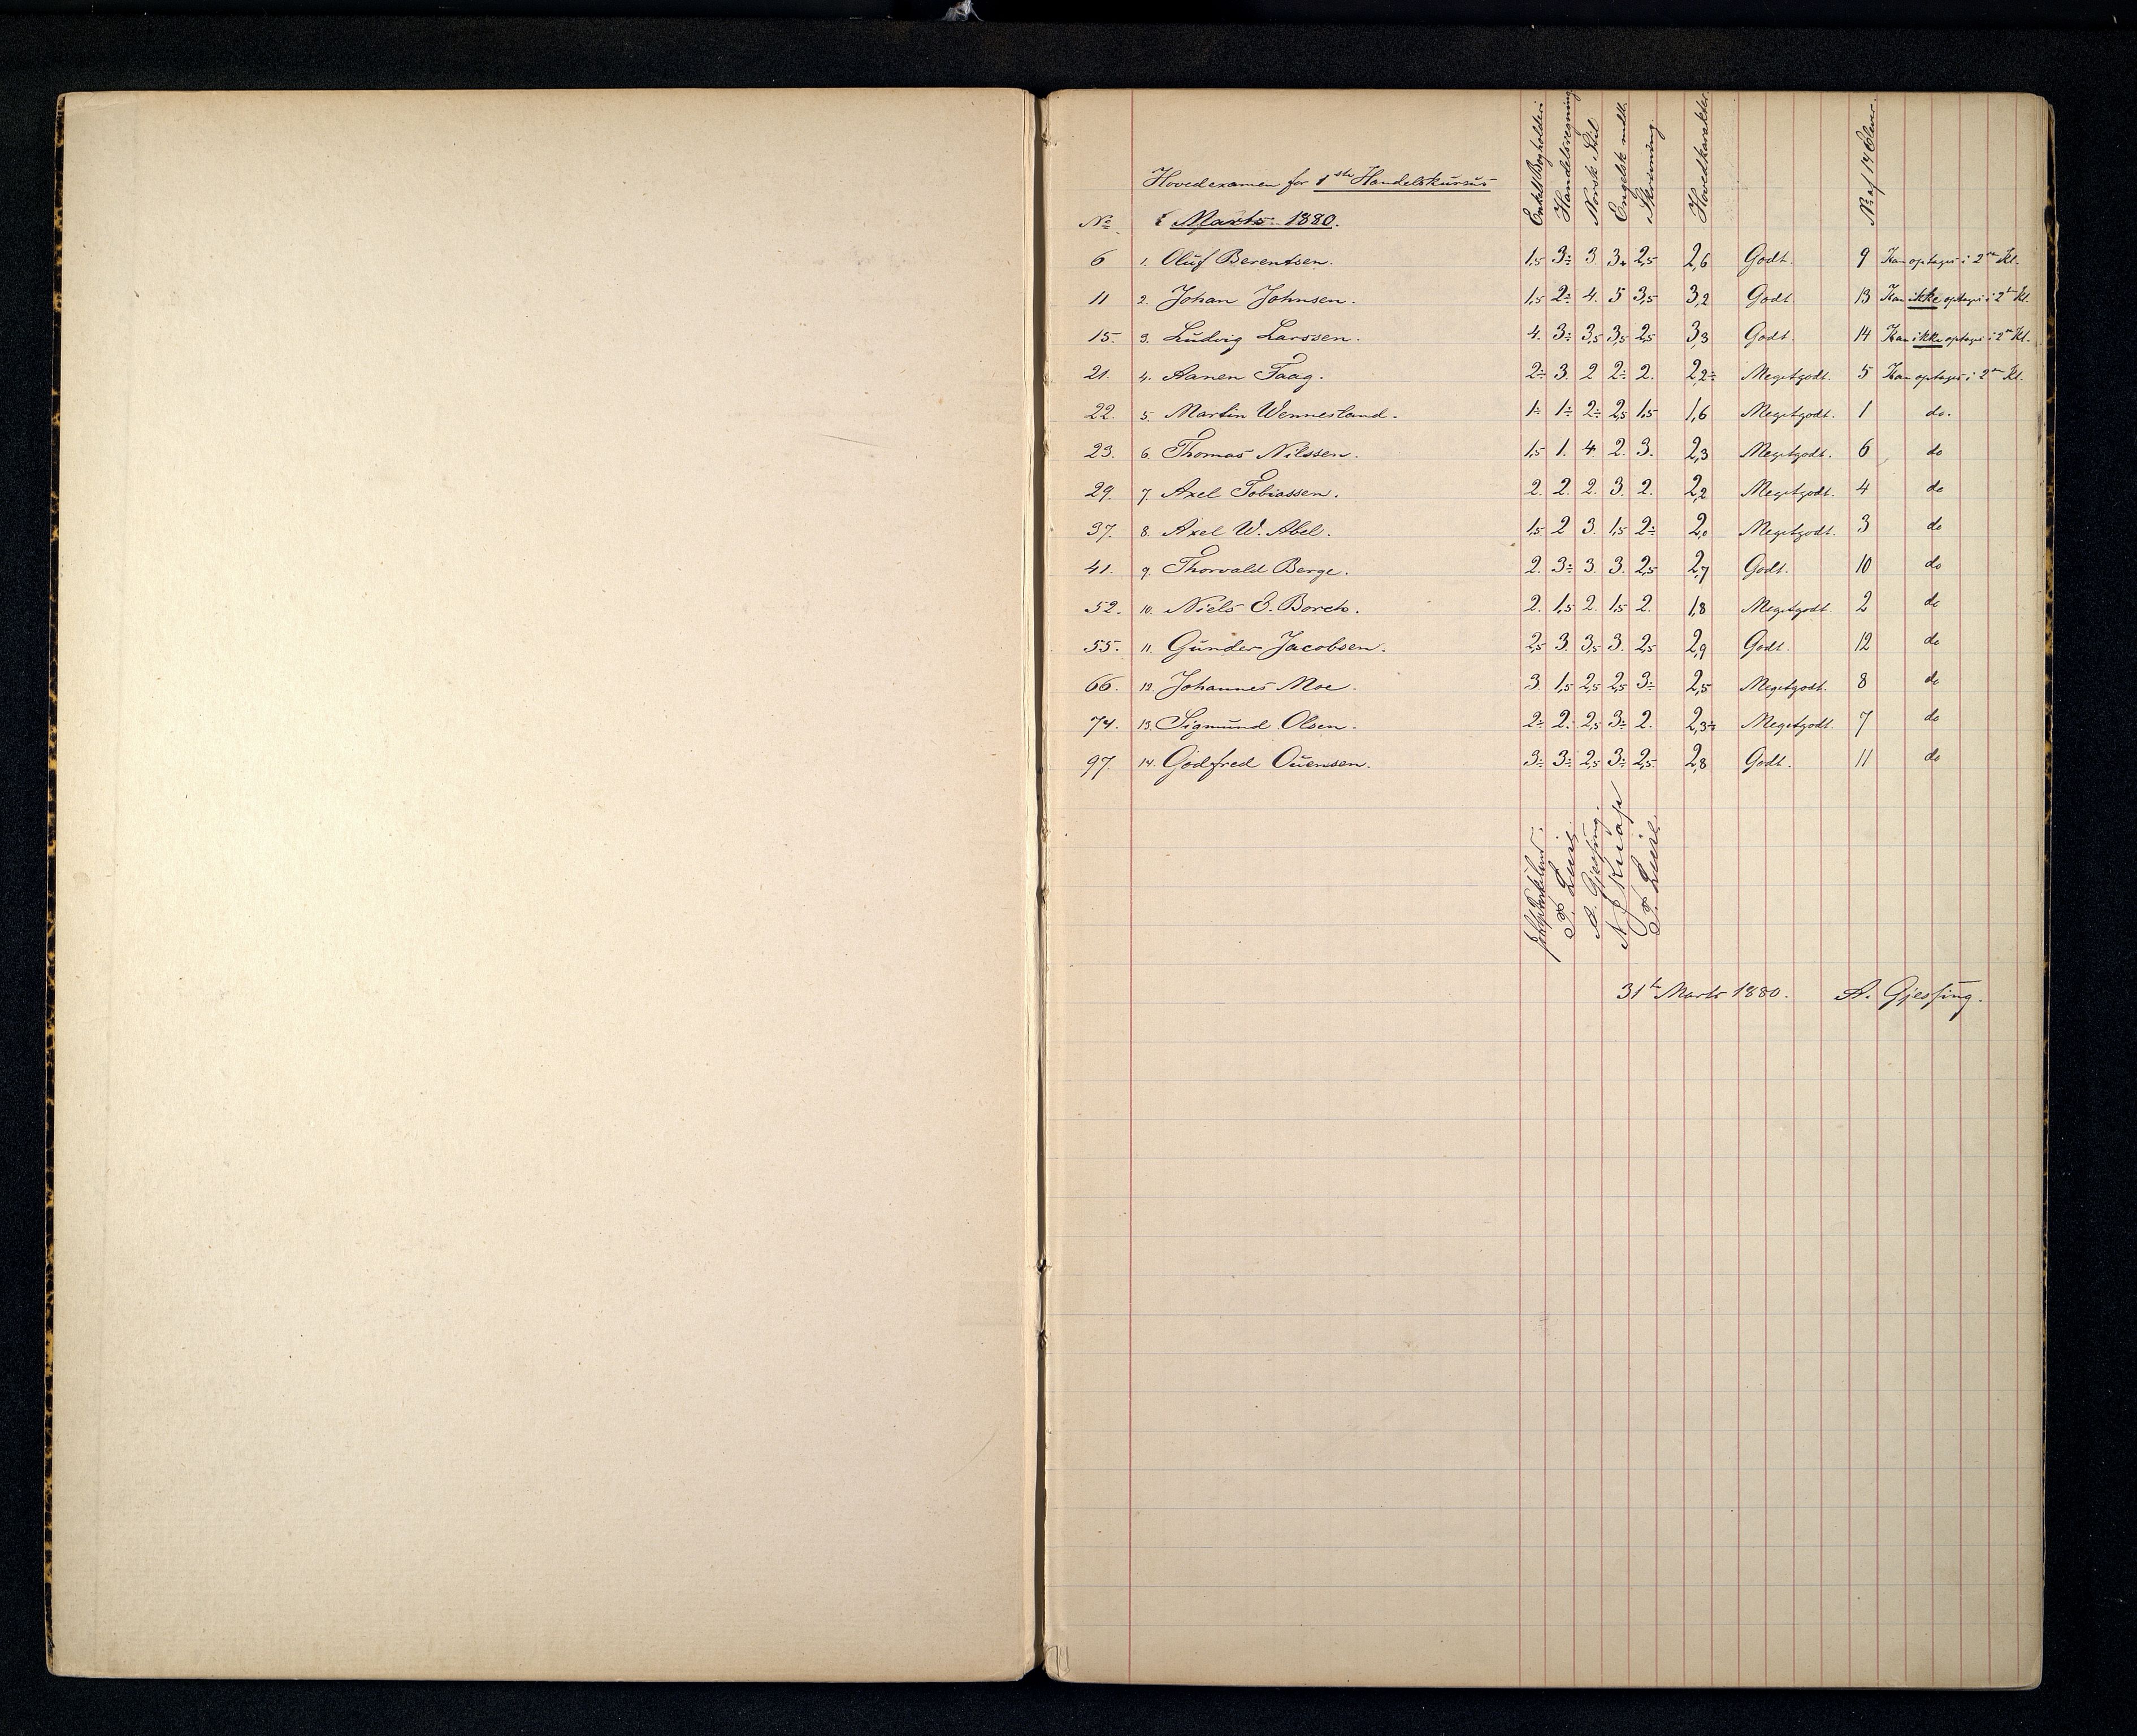 Hovedexamen for 1ste Handelskursus
i Marts 1880.
No
Enkelt Bogholderi
Handelsregning
Norsk Stil
Engelsk mdtl.
Skrivning.
Hovedkarakter.
No af 14 Elever.
6 1. Oluf Berentsen. 1,5 3÷ 3 3+ 2,5 2,6 Godt. 9 Kan optages i 2den Kl.
11 2. Johan Johnsen. 1,5 2÷ 4. 5 3,5 3,2 Godt. 13 Kan ikke optages i 2den Kl.
15. 3. Ludvig Larssen. 4. 3÷ 3,5 3,5 2,5 3,3 Godt. 14 Kan ikke optages i 2den Kl.
21. 4. Aanen Faag. 2÷ 3. 2 2÷ 2. 2,2÷ Megetgodt. 5 Kan optages i 2den Kl.
22. 5. Martin Wennesland. 1÷ 1÷ 2÷ 2,5 1,5 1,6 Megetgodt. 1 do.
23. 6. Thomas Nilssen. 1,5 1. 4. 2. 3. 2,3 Megetgodt. 6 do
29. 7. Axel Tobiassen. 2. 2. 2. 3. 2. 2,2 Megetgodt. 4 do
37. 8. Axel W. Abel. 1,5 2 3. 1,5 2÷ 2,0 Megetgodt. 3 do
41. 9. Thorvald Berge. 2. 3÷ 3. 3. 2,5 2,7 Godt. 10 do
52. 10. Niels E. Borch. 2. 1,5 2. 1,5 2. 1,8 Megetgodt. 2 do
55. 11. Gunder Jacobsen. 2,5 3. 3,5 3. 2,5 2,9 Godt. 12 do
66. 12. Johannes Moe. 3. 1,5 2,5 2,5 3÷ 2,5 Megetgodt. 8 do
74. 13. Sigmund Olsen. 2÷ 2. 2,5 3÷ 2. 2,3÷ Megetgodt. 7 do
97. 14. Godfred Ouensen. 3÷ 3÷ 2,5 3÷ 2,5. 2,8 Godt. 11 do
A. Gjessing.
31te Marts 1880. A. Gjessing.